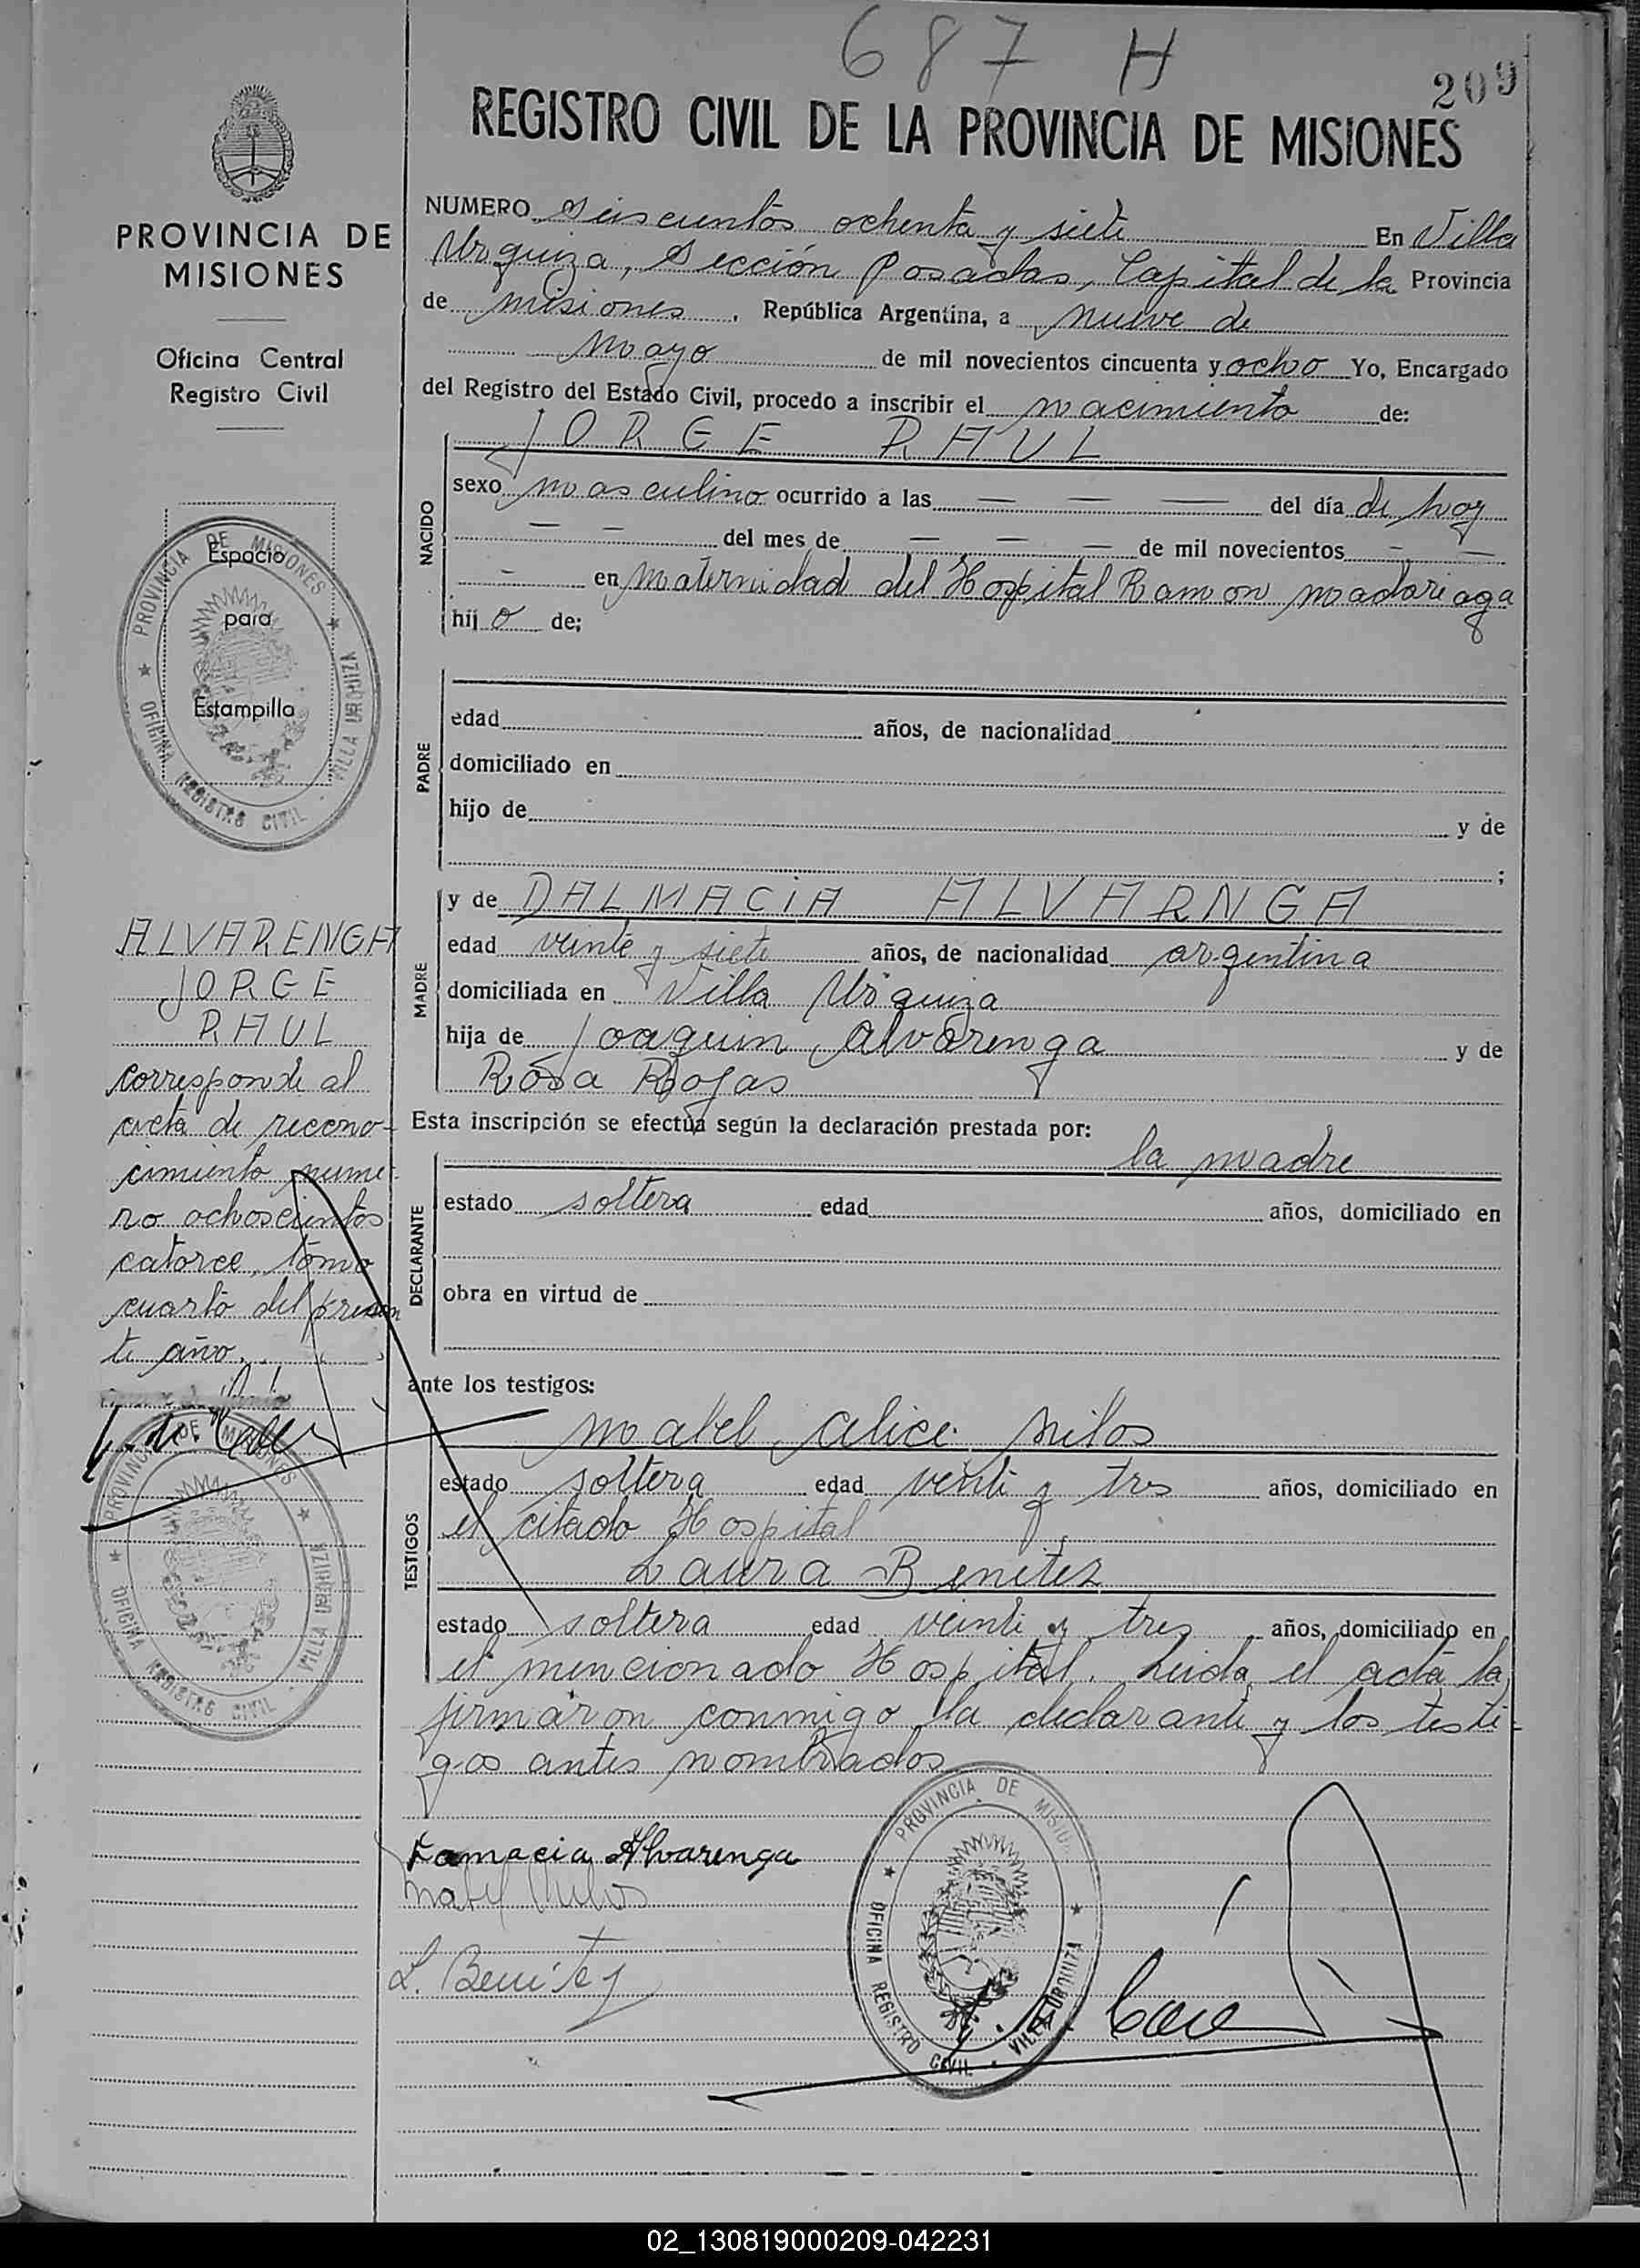 687 H
209
REGISTRO CIVIL DE LA PROVINCIA DE MISIONES
PROVINCIA DE
MISIONES
Oficina Central
Registro Civil
Espacio
para
Estampilla
PROVINCIA DE MISIONES
OFICINA REGISTRO CIVIL - VILLA URQUIZA
ALVARENGA
JORGE
RAUL
corresponde al
acta de recono-
cimiento nume-
ro ochoscientos
catorce, tomo
cuarto del presen
te año.
PROVINCIA DE MISIONES
OFICINA REGISTRO CIVIL - VILLA URQUIZA
NUMERO seiscientos ochenta y siete En Villa
Urquiza, Sección Posadas, Capital de la Provincia
de misiones, República Argentina, a nueve de
mayo de mil novecientos cincuenta y ocho Yo, Encargado
del Registro del Estado Civil, procedo a inscribir el nacimiento de:
NACIDO
JORGE RAUL
sexo masculino ocurrido a las — — — del día de hoy
— — del mes de — — — de mil novecientos — —
- en maternidad del Hospital Ramon madariaga
hijo de;
PADRE
edad años, de nacionalidad
domiciliado en
hijo de y de
;
MADRE
y de DALMACIA ALVARNGA
edad veinte y siete años, de nacionalidad argentina
domiciliada en Villa Urquiza
hija de Joaquin Alvarenga y de
Rosa Rojas
Esta inscripción se efectúa según la declaración prestada por:
DECLARANTE
la madre
estado soltera edad años, domiciliado en
obra en virtud de
ante los testigos:
TESTIGOS
mabel Alice Milos
estado soltera edad veinti y tres años, domiciliado en
el citado Hospital
Laura Benitez
estado soltera edad veinti y tres años, domiciliado en
el mencionado Hospital. Leida el acta la
firmaron conmigo la declarante y los testi-
gos antes nombrados
Famacia Alvarenga
Mabel Milos
L. Benitez
PROVINCIA DE MISIONES
OFICINA REGISTRO CIVIL - VILLA URQUIZA
02_130819000209-042231